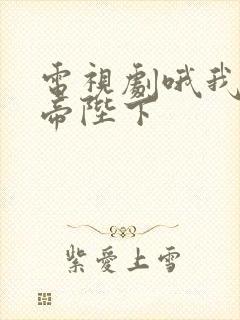 電視劇哦我
帝陛下
紫愛上雪